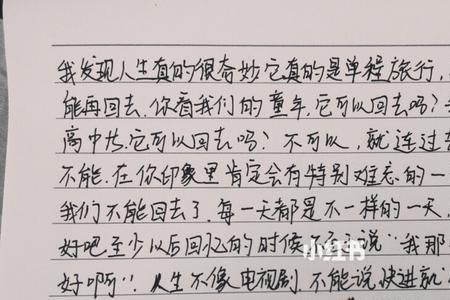 我发现人生真的很奇妙它真的是单程旅行,
能再回去.你看我们的童年,它可以回去吗?
高中也,它可以回去吗? 不可以, 就连过
不能.在你印象里肯定会有特别难忘的一
我们不能回去了.每一天都是不一样的一天,
好吧至少以后回忆的时候不会说"我那
好啊"! 人生不像电视剧.不能说快进就
小红书